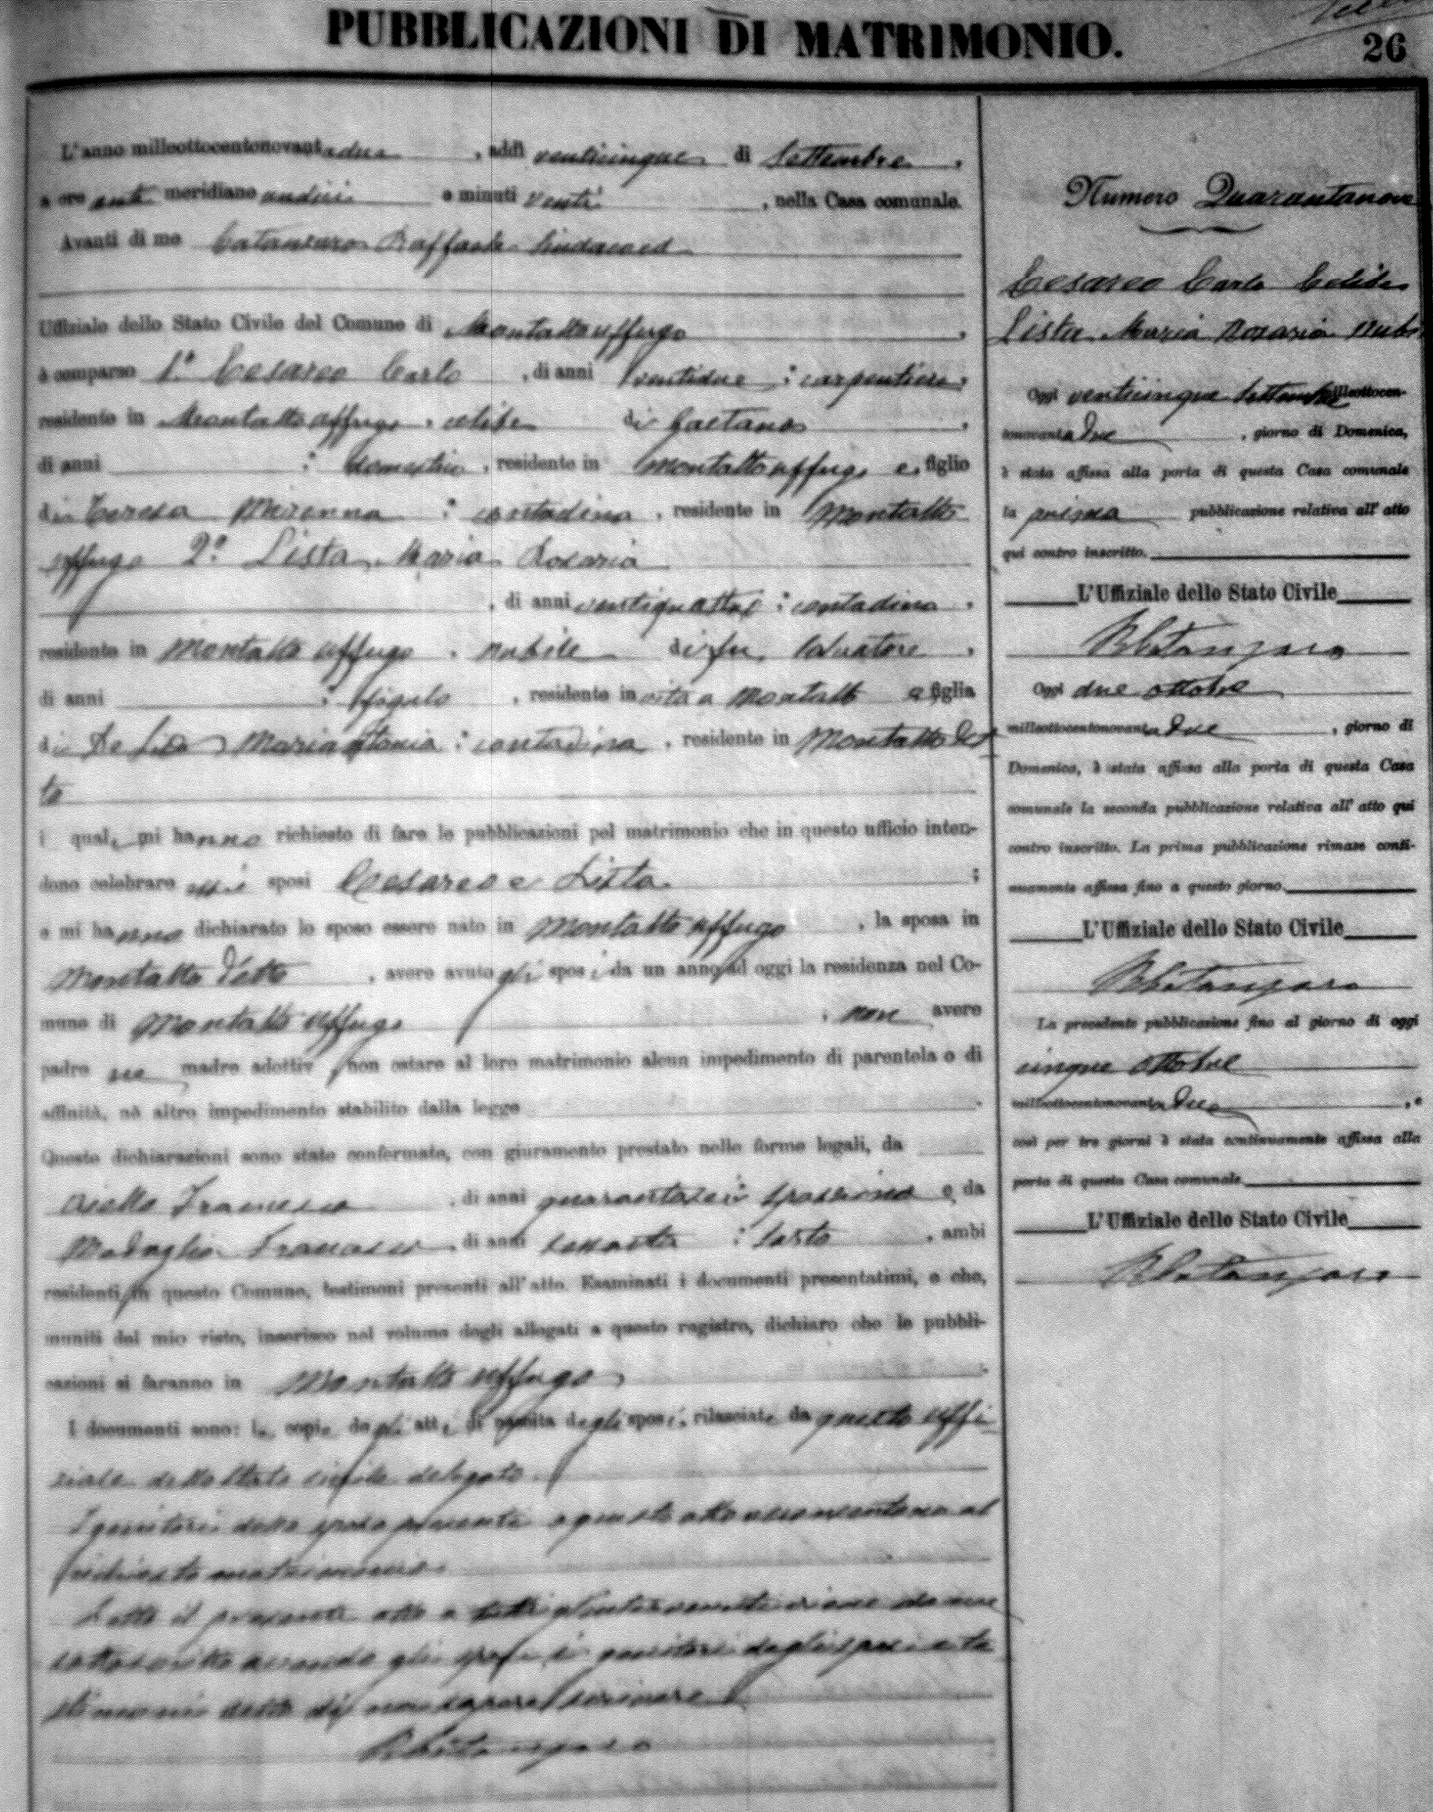 PUBBLICAZIONI DI MATRIMONIO.
26
L'anno milleottocentonovantadue, addì venticinque di Settembre,
a ore anti meridiane undici e minuti venti, nella Casa comunale.
Avanti di me Catanzaro Raffaele Sindaco ed
Uffiziale dello Stato Civile del Comune di Montalto uffugo,
è comparso 1.º Cesareo Carlo, di anni ventidue; carpentiere,
residente in Montalto uffugo, celibe di Gaetano,
di anni ; domestico, residente in Montalto uffugo e, figlio
di Teresa Mirenna; contadina, residente in Montalto
uffugo 2.º Lista Maria Rosaria
, di anni ventiquattro; contadina,
residente in Montalto uffugo, nubile di fu Salvatore,
di anni ; figulo, residente in vita a Montalto e figlia
di De Mariantonia; contadina, residente in Montalto det
to
i quali mi hanno richiesto di fare le pubblicazioni pel matrimonio che in questo ufficio inten-
dono celebrare essi sposi Cesareo e Lista;
e mi hanno dichiarato lo sposo essere nato in Montalto uffugo, la sposa in
Montalto detto, avere avuto gli sposi da un anno ad oggi la residenza nel Co-
mune di Montalto uffugo, non avere
padre ne madre adottiv non ostare al loro matrimonio alcun impedimento di parentela o di
affinità, nè altro impedimento stabilito dalla legge.
Queste dichiarazioni sono state confermate, con giuramento prestato nelle forme legali, da
Aiello Francesco, di anni quarantasei; e da
Francesco, di anni sessanta; sarto, ambi
residenti in questo Comune, testimoni presenti all'atto. Esaminati i documenti presentatimi, e che,
muniti del mio visto, inserisco nel volume degli allegati a questo registro, dichiaro che le pubbli-
cazioni si faranno in Montalto uffugo.
I documenti sono: le copie degli atti di nascita degli sposi, rilasciate da questo uffi
ziale dello Stato civile delegato.
I genitori della sposa presenti a questo atto acconsentono al
richiesto matrimonio.
Letto il presente atto a tutti gl'intervenuti viene da me
sottoscritto avendo gli sposi i genitori degli sposi e te
stimoni detto di non sapere scrivere
RCatanzaro
Numero Quarantanove
Cesareo Carlo Celibe
Lista Maria Rosaria Nub
Oggi venticinque Settembre milleottocen-
tonovantadue, giorno di Domenica,
è stata affissa alla porta di questa Casa comunale
la prima pubblicazione relativa all'atto
qui contro inscritto.
L'Uffiziale dello Stato Civile
RCatanzaro
Oggi due ottobre
milleottocentonovantadue, giorno di
Domenica, è stata affissa alla porta di questa Casa
comunale la seconda pubblicazione relativa all'atto qui
contro inscritto. La prima pubblicazione rimase conti-
nuamente affissa fino a questo giorno.
L'Uffiziale dello Stato Civile
RCatanzaro
La precedente pubblicazione fino al giorno di oggi
cinque ottobre
milleottocentonovantadue, e
così per tre giorni è stata continuamente affissa alla
porta di questa Casa comunale.
L'Uffiziale dello Stato Civile
RCatanzaro